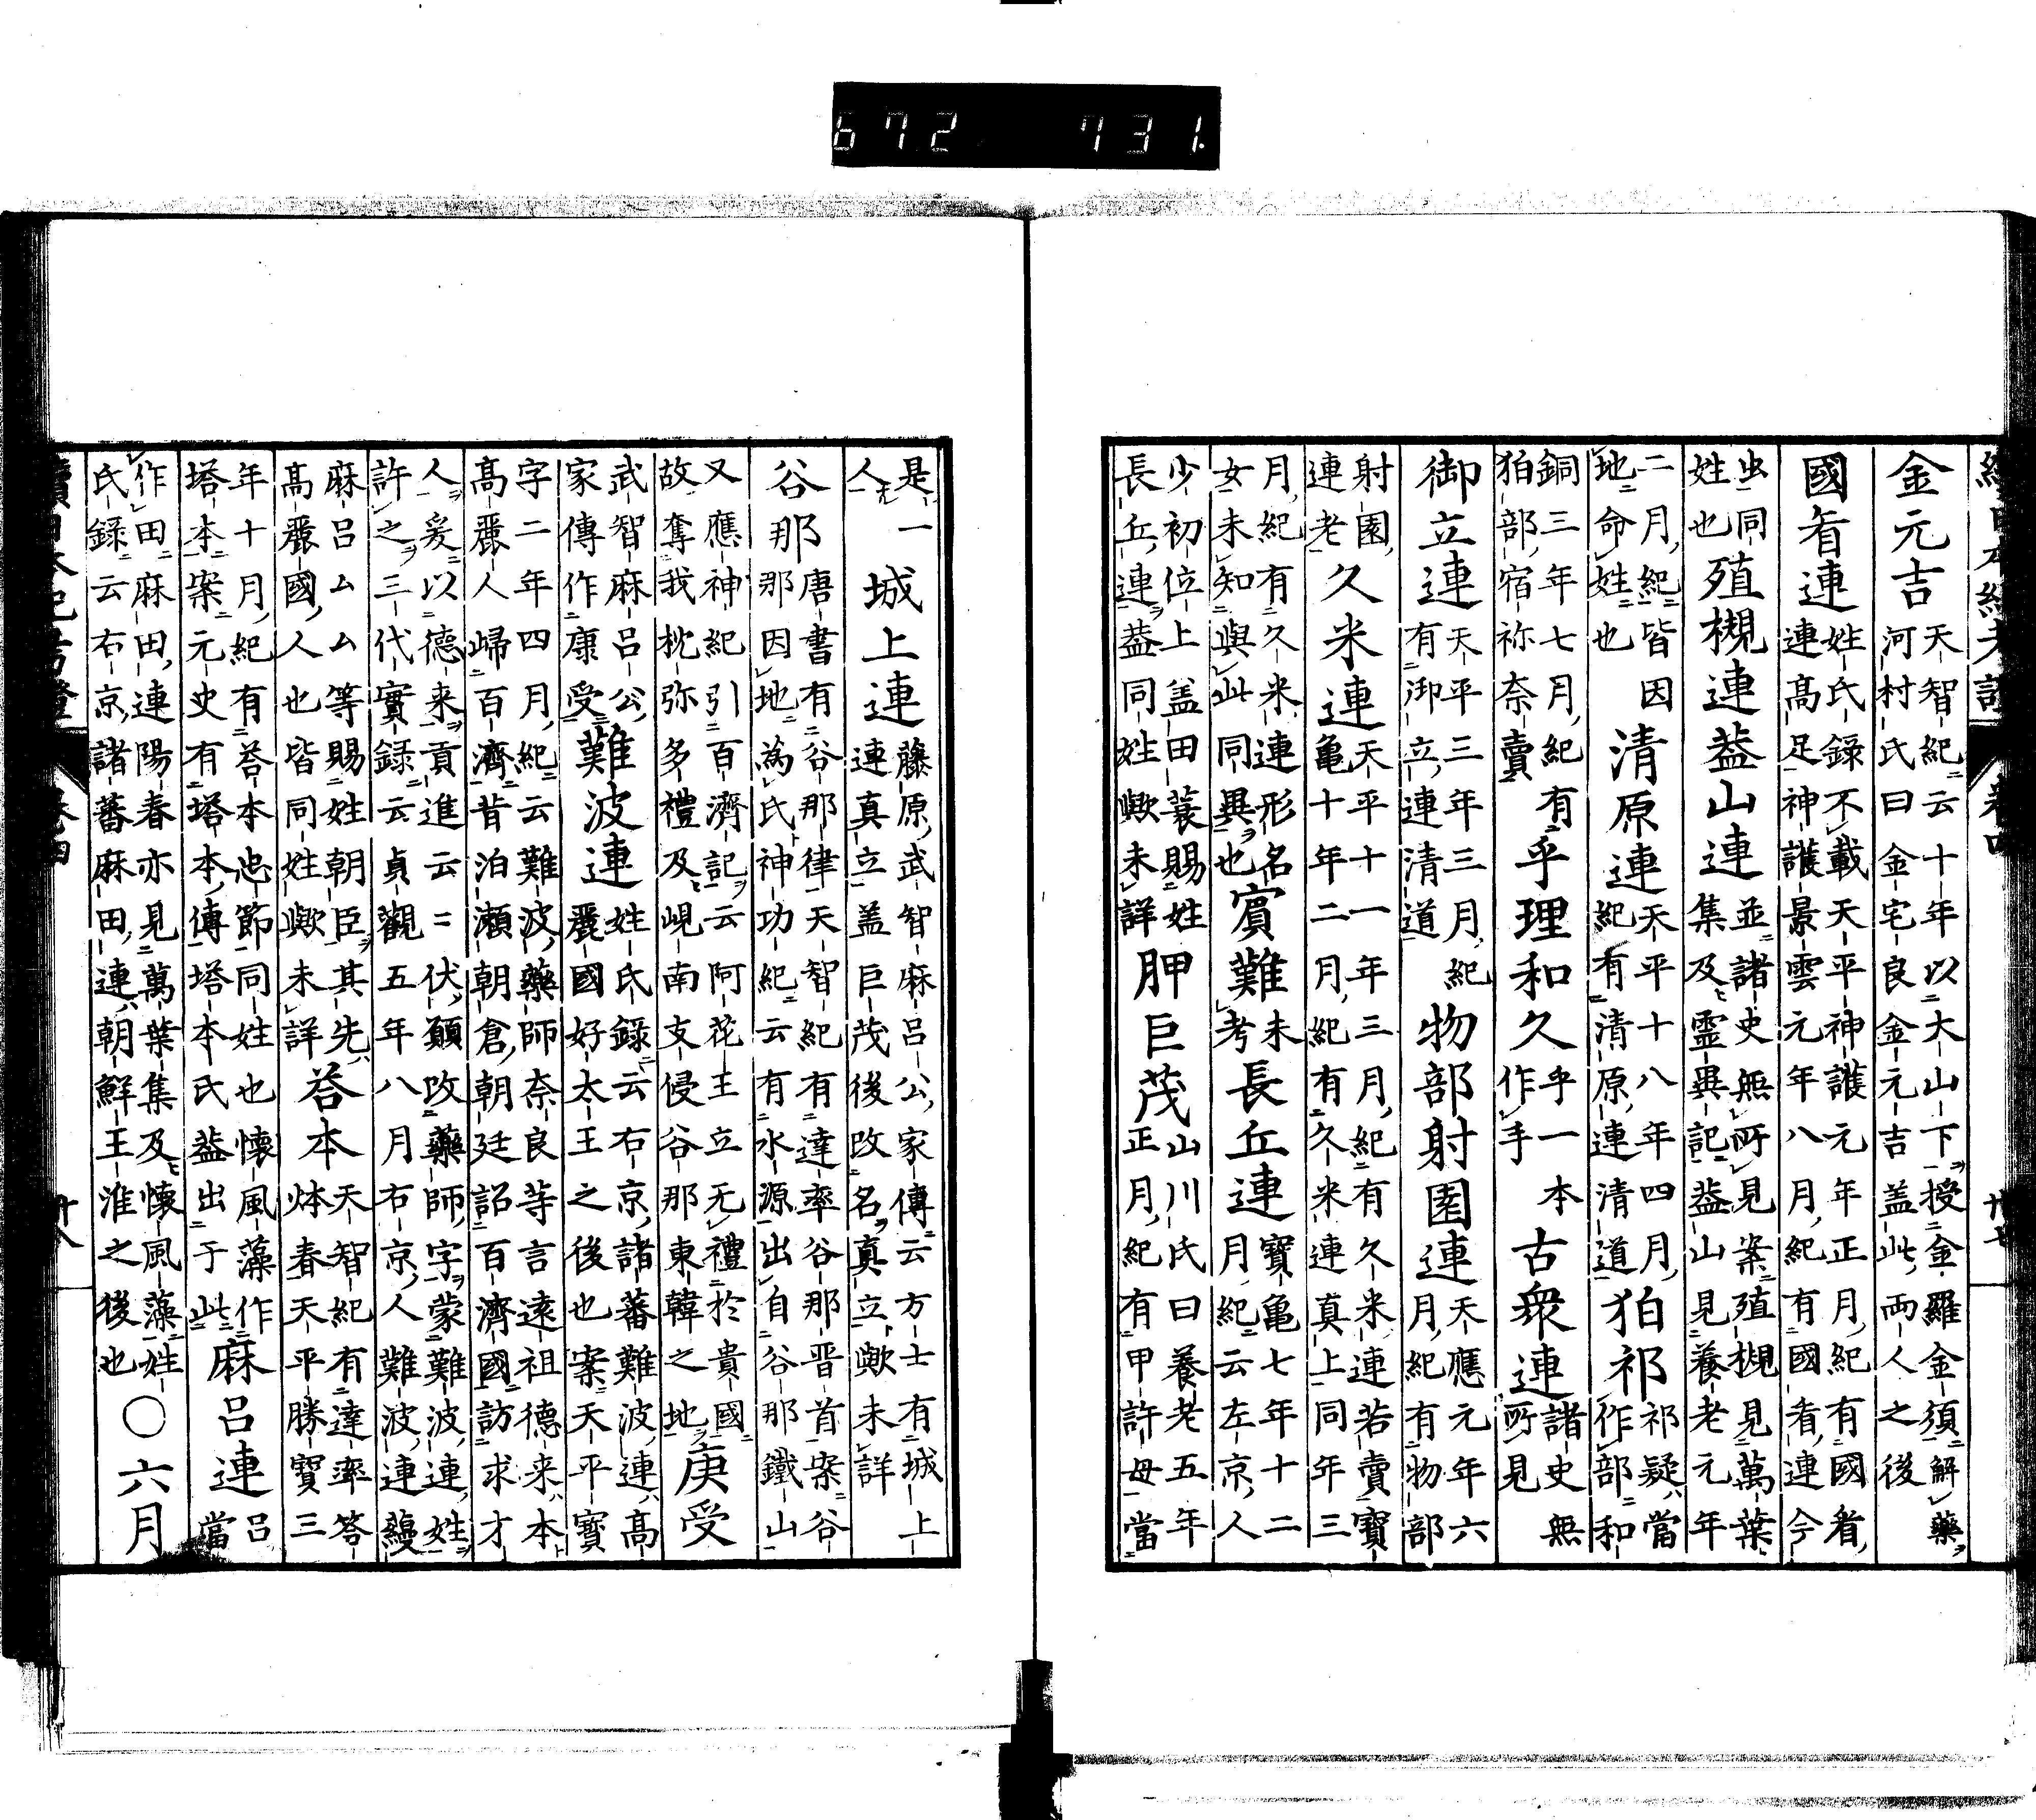 續日本紀考證 卷四 廿七
金元吉 天智紀云十年以大山下授金羅金須解藥 河村氏曰金宅良金元吉盖此兩人之後
國看連 姓氏録不載天平神護元年正月紀有國看 連髙足神護景雲元年八月紀有國看連今
虫同 姓也 殖槻連益山連 並諸史無所見案殖槻見萬葉 集及霊異記益山見養老元年
二月紀皆因 地命姓也 清原連 天平十八年四月 紀有清原連清道 狛祁 祁疑當 作部和
銅三年七月紀有 狛部宿祢奈賣 乎理和久 乎一本 作手 古衆連 諸史無 所見
御立連 天平三年三月紀 有御立連清道 物部射園連 天應元年六 月紀有物部
射園 連老 久米連 天平十一年三月紀有久米連若賣寶 亀十年二月紀有久米連真上同年三
月紀有久米連形名 女未知與此同異也 賓難 未 考 長丘連 寶亀七年十二 月紀云左京人
少初位上盖田蓑賜姓 長丘連益同姓歟未詳 胛巨茂 山川氏曰養老五年 正月紀有甲許母當
是一 人 城上連 藤原武智麻呂公家傳云方士有城上 連真立盖巨茂後改名真立歟未詳
谷那 唐書有谷那律天智紀有達率谷那晋首案谷 那因地為氏神功紀云有水源出自谷那鐵山
又應神紀引百濟記云阿花王立无禮於貴國 故奪我枕弥多禮及峴南支侵谷那東韓之地 庚受
武智麻呂公 家傳作康受 難波連 姓氏録云右京諸蕃難波連髙 麗國好太王之後也案天平寳
字二年四月紀云難波藥師奈良等言遠祖德来本 髙麗人歸百濟昔泊瀬朝倉朝廷詔百濟國訪求才
人爰以德来貢進云二伏願改藥師字蒙難波連姓 許之三代實録云貞觀五年八月右京人難波連縵
麻呂厶厶等賜姓朝臣其先 髙麗國人也皆同姓歟未詳 荅本㶱春 天智紀有達率答 天平勝寳三
年十月紀有荅本忠節同姓也懷風藻作 塔本案元史有塔本傳塔本氏益出于此 麻呂連 呂 當
作田麻田連陽春亦見萬葉集及懷風藻姓 氏録云右京諸蕃麻田連朝鮮王淮之後也 ○六月
續日本紀考證 卷四 廿八
672 731.